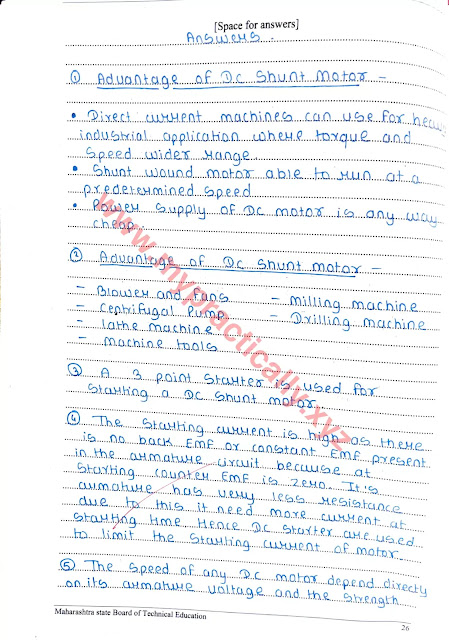 [Space for answers]
Answers.
① Advantage of D.C Shunt Motor -
• Direct current machines can use for heavy
industrial application where torque and
speed wider range.
• Shunt wound motor able to run at a
predetermined speed
• Power supply of DC motor is any way
cheap.
② Advantage of D.C Shunt motor -
- Blower and fans - milling machine
- Centrifugal Pump - Drilling machine
- Lathe machine
- machine tools
③ A 3 point starter is used for
starting a DC shunt motor.
④ The starting current is high as there
is no back EMF or constant EMF present
in the armature circuit because at
starting counter EMF is zero. It's
armature has very less resistance
due to this it need more current at
starting time. Hence D.C starter are used
to limit the starting current of motor.
⑤ The speed of any D.C motor depend directly
on its armature voltage and the strength
Maharashtra state Board of Technical Education
26
www.mypractically.xyz